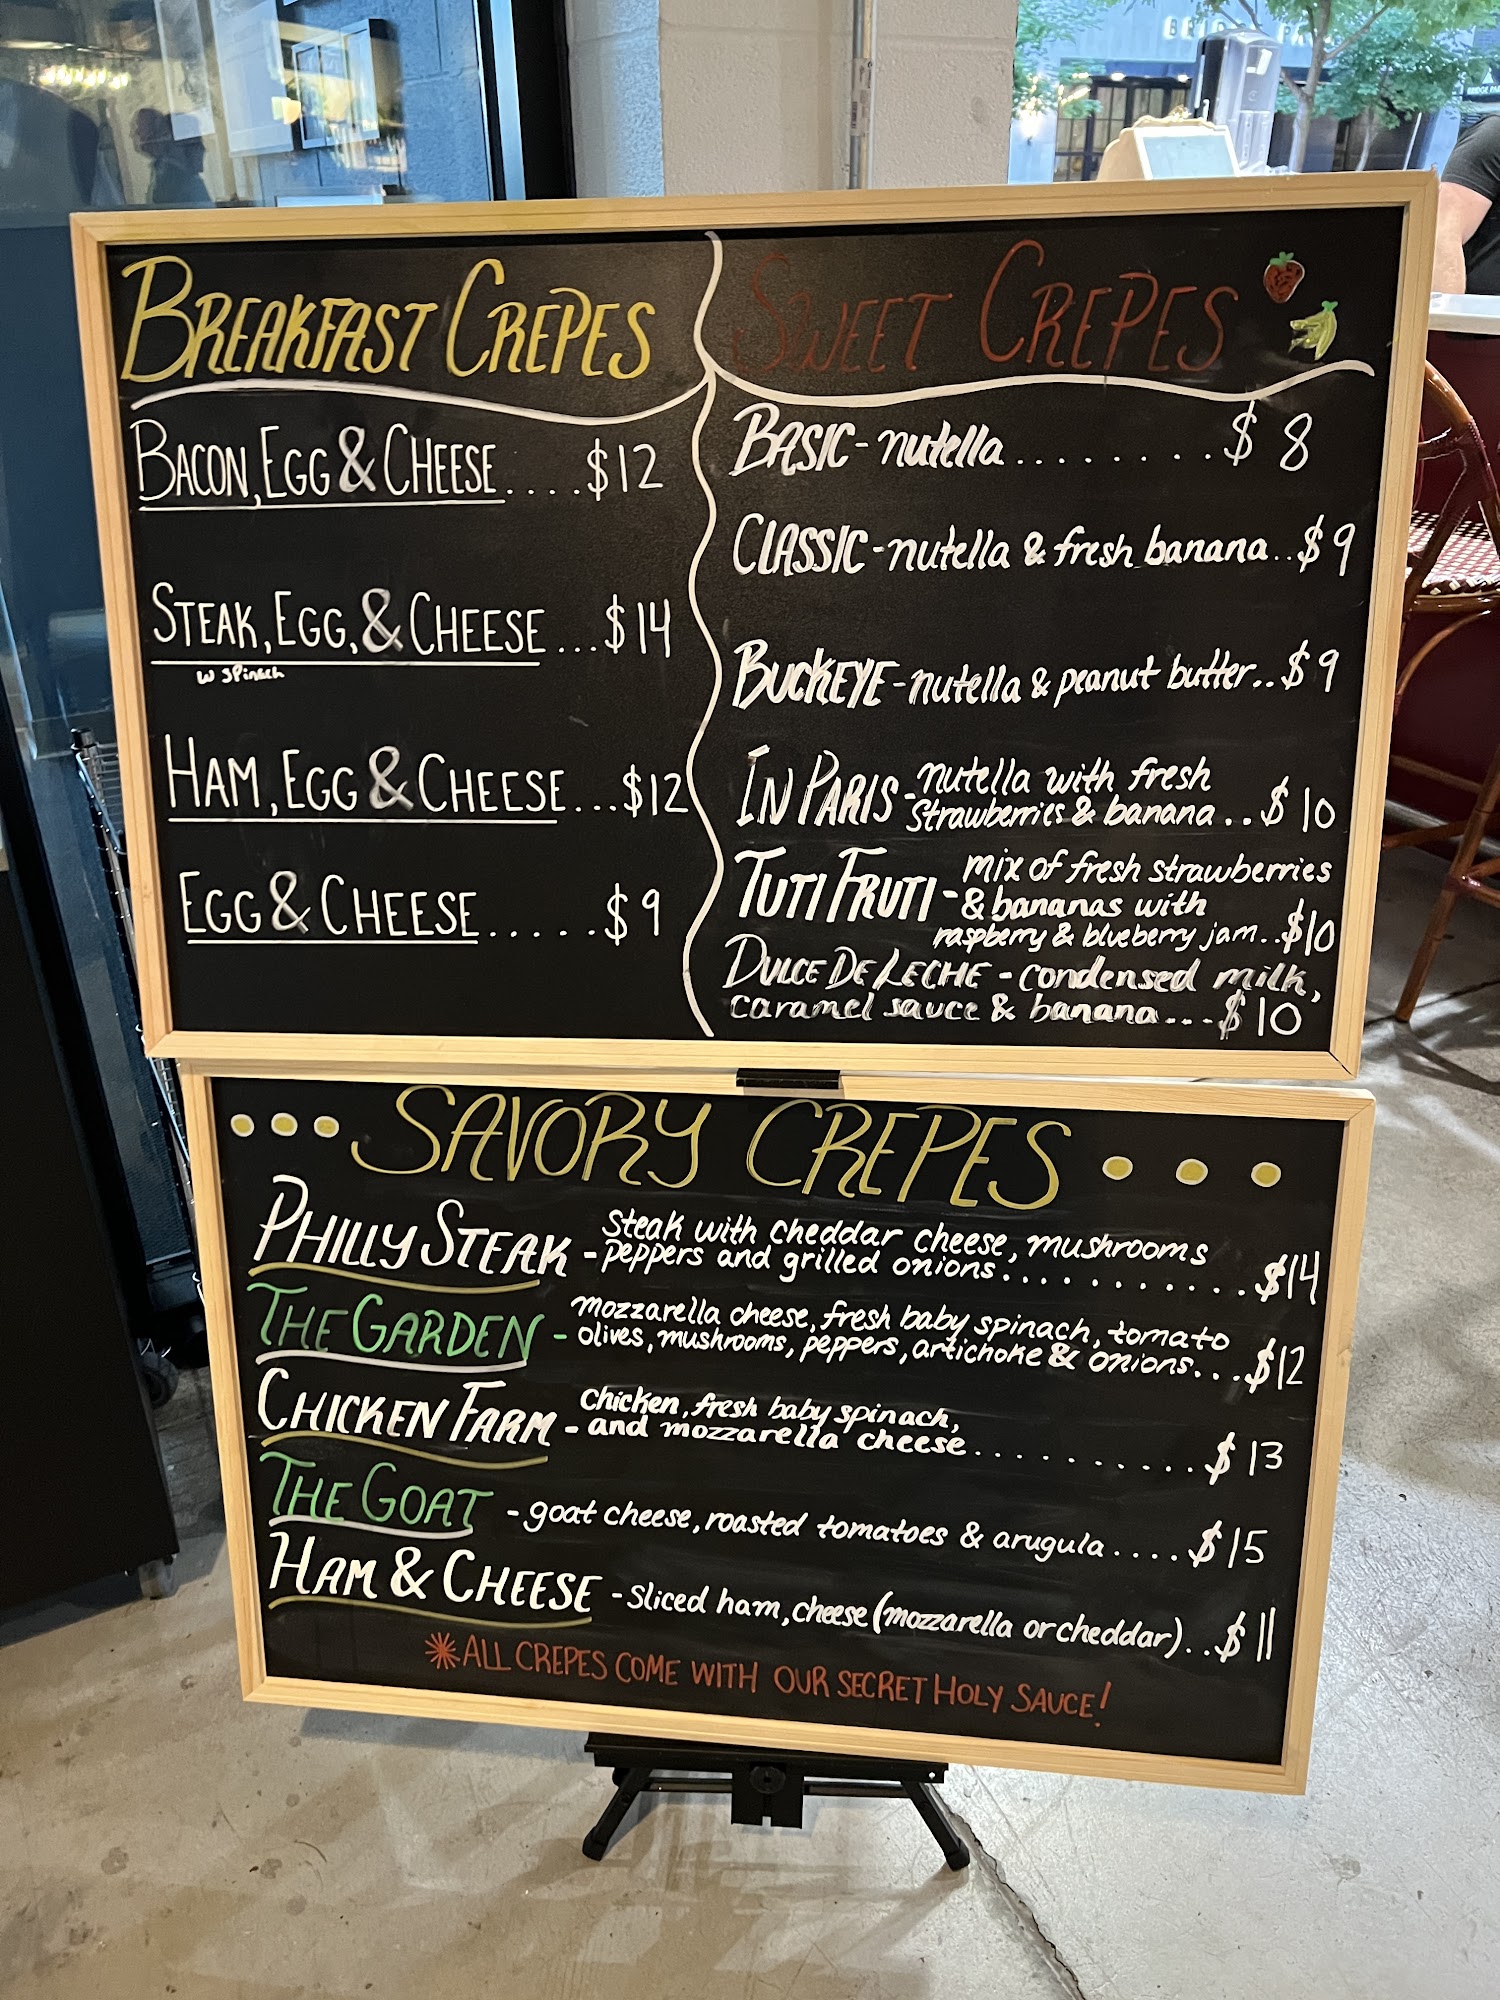 BREAKFAST CREPES
BACON, EGG & CHEESE....$12
STEAK, EGG, & CHEESE...$14
w spinach
HAM, EGG & CHEESE...$12
EGG & CHEESE.....$9
SWEET CREPES
BASIC - nutella.........$8
CLASSIC - nutella & fresh banana..$9
BUCKEYE - nutella & peanut butter..$9
IN PARIS - nutella with fresh
strawberries & banana...$10
TUTI FRUTI - mix of fresh strawberries
& bananas with
raspberry & blueberry jam..$10
DULCE DE LECHE - condensed milk,
caramel sauce & banana...$10
SAVORY CREPES
PHILLY STEAK - steak with cheddar cheese, mushrooms
peppers and grilled onions............$14
THE GARDEN - mozzarella cheese, fresh baby spinach, tomato
olives, mushrooms, peppers, artichoke & onions...$12
CHICKEN FARM - chicken, fresh baby spinach,
and mozzarella cheese...........$13
THE GOAT - goat cheese, roasted tomatoes & arugula....$15
HAM & CHEESE - sliced ham, cheese (mozzarella or cheddar)..$11
*ALL CREPES COME WITH OUR SECRET HOLY SAUCE!